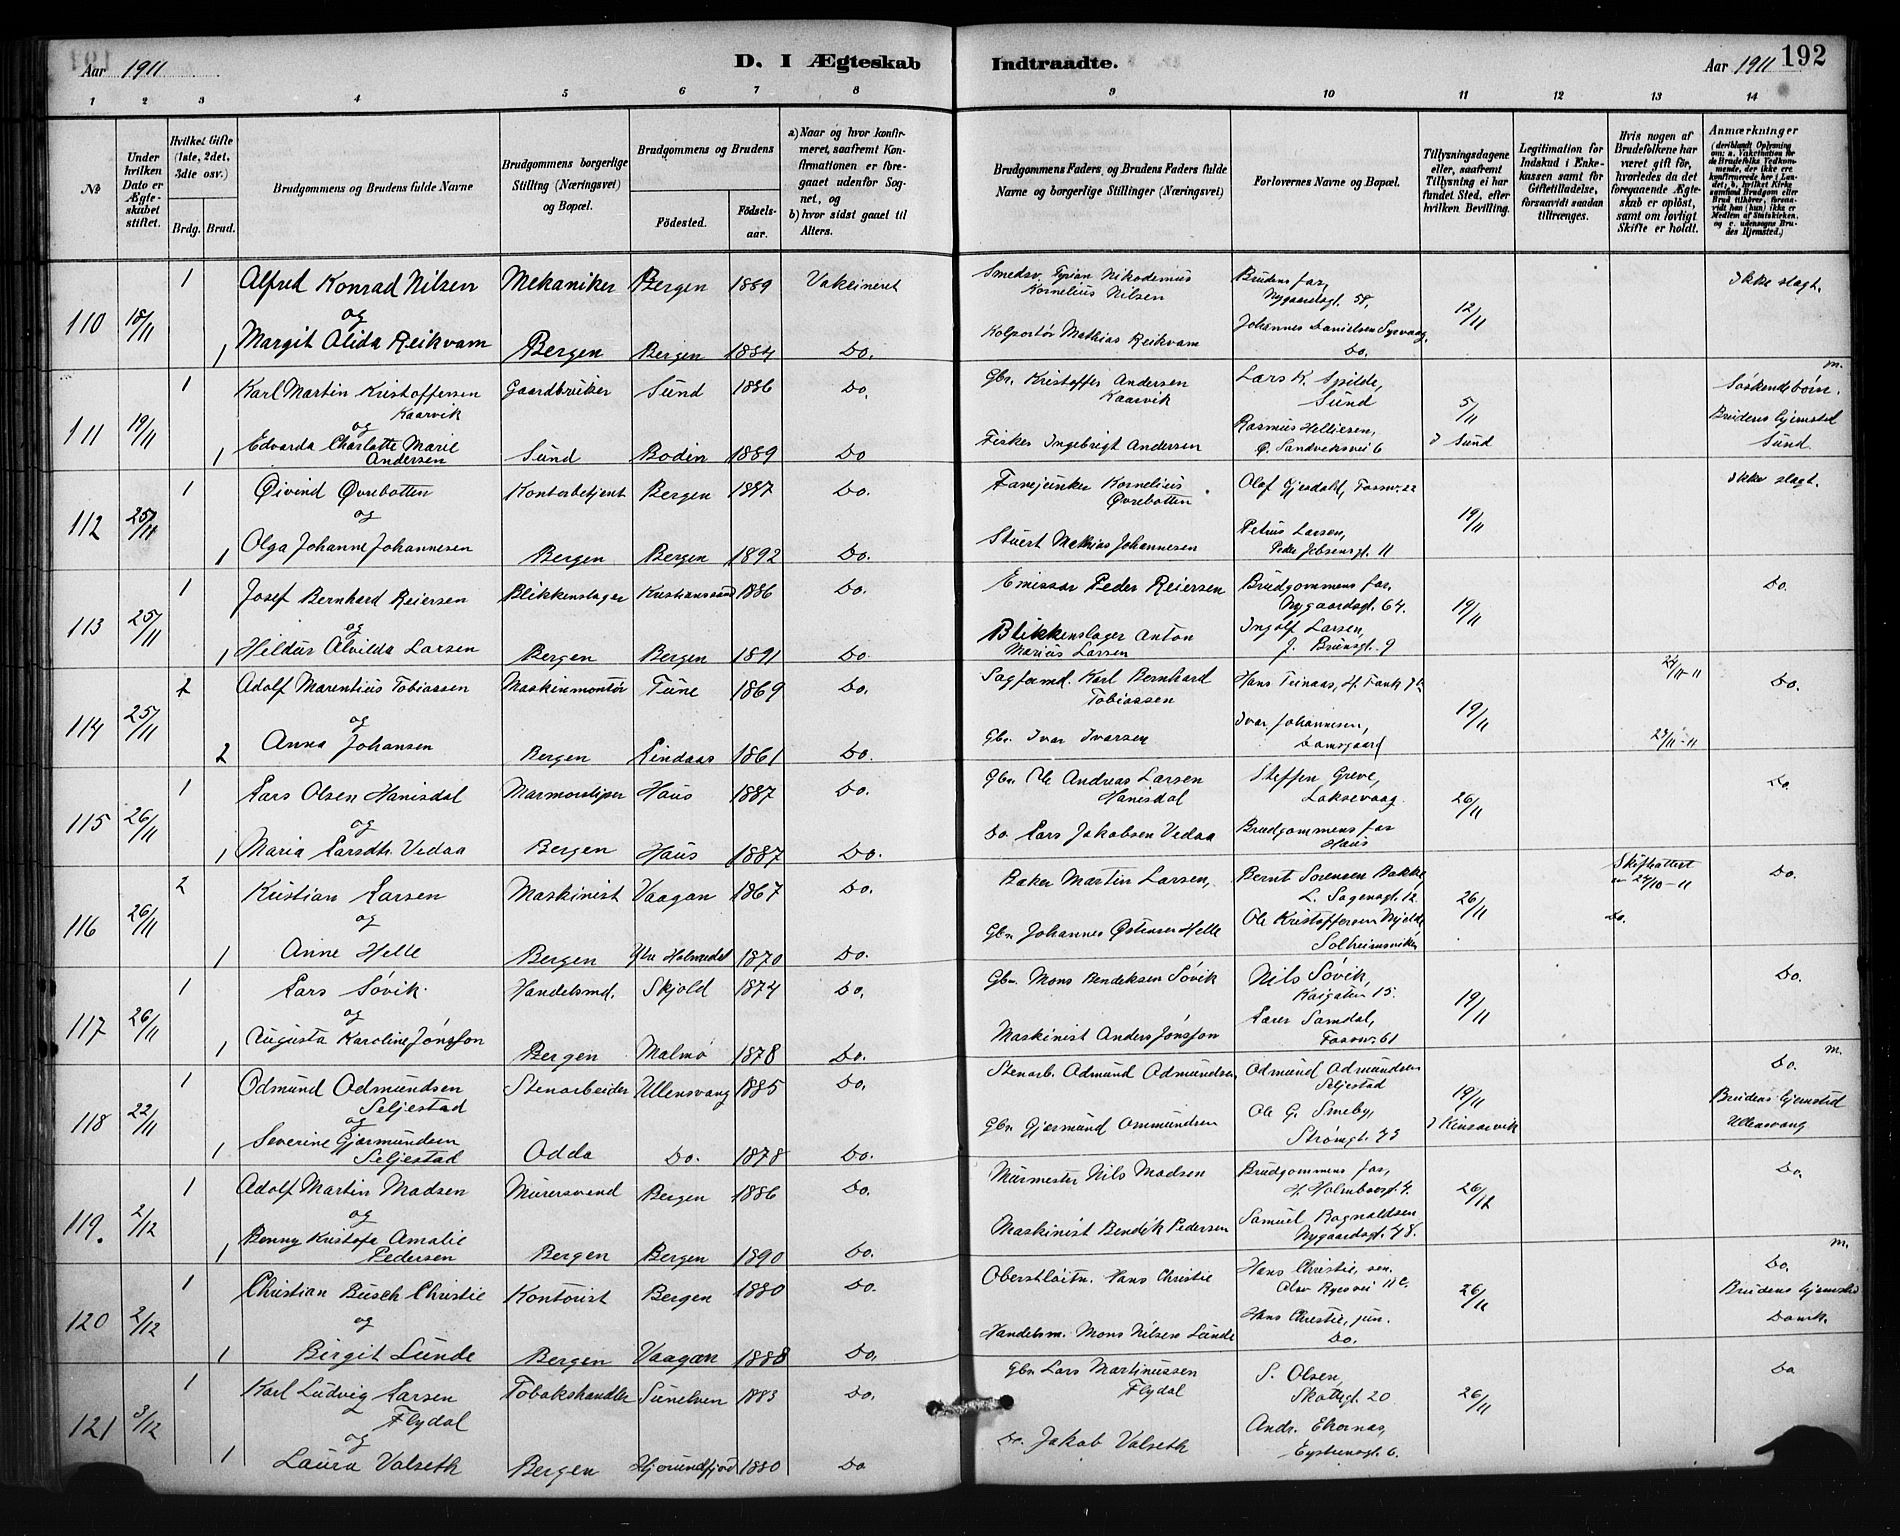 Aar 1911
D. I Ægteskab Indtraadte.
Aar 1911 192
1 2 3 4 5 6 7 8 9 10 11 12 13 14
No
Under hvilken Dato er Ægteskabet stiftet.
Hvilket Gifte (1ste, 2det, 3die osv.)
Brdg. Brud.
Brudgommens og Brudens fulde Navne
Brudgommens borgerlige Stilling (Næringsvei) og Bopæl.
Brudgommens og Brudens
Fødested. Fødselsaar.
a) Naar og hvor konfirmeret, saafremt Konfirmationen er foregaaet udenfor Sognet, og
b) hvor sidst gaaet til Alters.
Brudgommens Faders og Brudens Faders fulde Navne og borgerlige Stillinger (Næringsvei)
Forlovernes Navne og Bopæl.
Tillysningsdagene eller, saafremt Tillysning ei har fundet Sted, efter hvilken Bevilling.
Legitimation for Indskud i Enkekassen samt for Giftetilladelse, forsaavidt saadan tiltrænges.
Hvis nogen af Brudefolkene har været gift før, hvorledes da det foregaaende Ægteskab er opløst, samt om lovligt Skifte er holdt.
Anmærkninger (deriblandt Oplysning om: a. Vakcination for de Brudefolks Vedkommende, der ikke ere konfirmerede her i Landet; b. hvilket Kirkesamfund Brudgom eller Brud tilhører, forsaavidt han (hun) ikke er Medlem af Statskirken, og c. udensogns Brudes Hjemsted.)
110 18/11 1 Alfred Konrad Nilsen Mekaniker Bergen 1889 Vakcineret Smedsv. Nikodemus Kornelius Nilsen Brudens far, Nygaardsgt. 58, 12/11 Ikke slægt.
og
1 Margit Alida Reikvam Bergen Bergen 1884 Do. Kolportør Mathias Reikvam Johannes Danielsen Do.
111 19/11 1 Karl Martin Kristoffersen Kaarvik Gaardbruker Sund 1886 Do. Gbr. Kristoffer Andersen Kaarvik Lars K. Spilde, Sund 5/11 i Sund m. Søskendebørn.
og
1 Edvarda Charlotte Marie Andersen Sund Bodin 1889 Do Fisker Ingebrigt Andersen Rasmus Helliesen, Ø. Sandviksvei 6 Brudens hjemsted Sund
112 25/11 1 Øivind Øvrebotten Kontorbetjent Bergen 1887 Do. Fanejunker Kornelius Øvrebotten Olaf Gjesdahl, Fossw. 22 19/11 Ikke slægt.
og
1 Olga Johanne Johannesen Bergen Bergen 1892 Do. Stuert Mathias Johannesen Petrus Larsen, Peder Jebsensgt. 11
113 25/11 1 Josef Bernhard Reiersen Blikkenslager Kristianssand 1886 Do. Emissær Peder Reiersen Brudgommens far, Nygaardsgt. 64. 19/11 Do.
og
1 Hildur Alvilda Larsen Bergen Bergen 1891 Do. Blikkenslager Anton Marius Larsen Ingolf Larsen, J. Brunsgt. 9
114 25/11 2 Adolf Marentius Tobiassen Maskinmontør Tune 1869 Do. Sagformd. Karl Bernhard Tobiassen Hans Teinaas, 19/11 24/11-11 Do.
og
2 Anna Johansen Bergen Lindaas 1861 Do. Gbr. Ivar Ivarsen Ivar Johannesen, Damsgaard 23/11-11
115 26/11 1 Lars Olsen Hanisdal Marmorsliper Haus 1887 Do. Gbr. Ole Andreas Larsen Hanisdal Steffen Greve, Laksevaag. 26/11 Do.
og
1 Maria Larsdtr. Vedaa Bergen Haus 1887 Do. Do Lars Jakobsen Vedaa Brudgommens far Haus
116 26/11 2 Kristian Larsen Maskinist Vaagan 1867 Do. Baker Martin Larsen, Bernt Sørensen Bakke, L. Sagensgt. 12 26/11 Skifteattest 24/10-11 Do.
og
1 Anne Helle Bergen Ytre Holmedal 1870 Do. Gbr. Johannes Østensen Helle Ole Kristoffersen Solheimsviken Do.
117 26/11 1 Lars Søvik. Handelsmd. Skjold 1874 Do. Gbr. Mons Bendiksen Søvik Nils Søvik, Kaigaten 15. 19/11 Do.
og
1 Augusta Karoline Jönsson Bergen Malmø 1878 Do. Maskinist Anders Jönsson Lærer Samdal, Fossw. 61
118 22/11 1 Odmund Odmundsen Seljestad Stenarbeider Ullensvang 1885 Do. Stenarb. Odmund Odmundsen Odmund Odmundsen Seljestad 19/11 i Kinsarvik m. Do.
og
1 Severine Gjermundsen Seljestad Odda Do. 1878 Do. Gbr. Gjermund Ommundsen Ole G. Smeby, Strømgt. 73 Brudens hjemsted Ullensvang
119. 2/12 1 Adolf Martin Madsen Murersvend Bergen 1886 Do. Murmester Nils Madsen Brudgommens far, H. Holmboesgt. 4. 26/12 Do.
og
1 Benny Kristofa Amalie Pedersen Bergen Bergen 1890 Do. Maskinist Bendik Pedersen Samuel Ragnaldsen Nygaardsgt. 78.
120 2/12 1 Christian Busch Christie Kontorist Bergen 1880 Do. Oberstløitn. Hans Christie Hans Christie, sen. Olav Ryesvei 11c. 26/11 m. Do.
og
1 Birgit Lunde Bergen Vaagan 1888 Do. Handelsm. Mons Nilsen Lunde Hans Christie, jun. Do. Brudens hjemsted Domk.
121 3/12 1 Karl Ludvig Larsen Flydal Tobakshandler Sunelven 1883 Do. Gbr. Lars Martinussen Flydal S. Olsen, Skottegt. 20 26/11 Do
og
1 Laura Valseth Bergen Hjørundfjord 1880 Do Do. Jakob Valseth Andr. Ekornas, Eystensgt. 6.